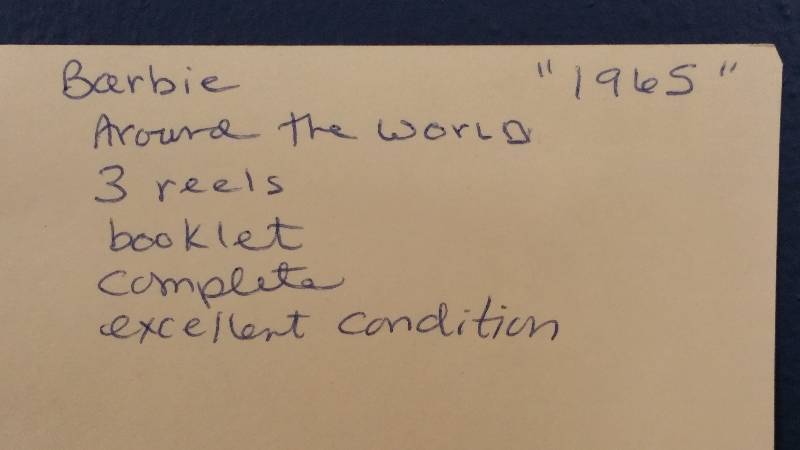 Barbie "1965"
Around the World
3 reels
booklet
complete
excellent condition